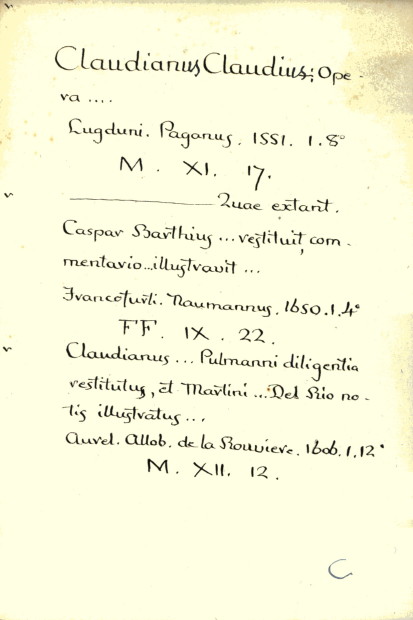 Claudianus Claudius; Ope-
ra ....
Lugduni. Paganus. 1551. 1.8°
M. XI. 17.
Quae extant.
Caspar Barthius ... restituit, com-
mentario...illustravit ...
Francofurti. Naumannus. 1650.1.4°
FF. IX. 22.
Claudianus ... Pulmanni diligentia
restitutus, et Martini ... Del Rio no-
tis illustratus ...
Aurel. Allob. de la Rouviere. 1606.1.12°
M. XII. 12.
C